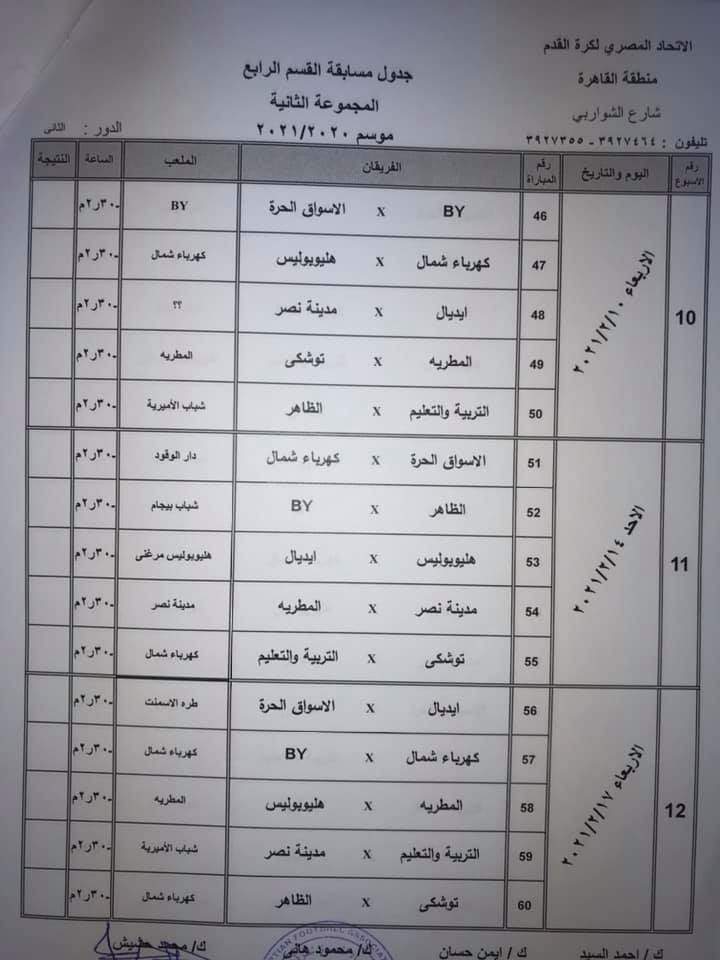 الاتحاد المصري لكرة القدم
منطقة القاهرة
شارع الشواربي
تليفون : ٣٩٢٧٤٦٤ - ٣٩٢٧٣٥٥
جدول مسابقة القسم الرابع
المجموعة الثانية
موسم ٢٠٢١/٢٠٢٠
الدور : الثانى
رقم الاسبوع اليوم والتاريخ رقم المباراة الفريقان الملعب الساعة النتيجة
10 الاربعاء ٢٠٢١/٢/١٠
46 BY X الاسواق الحرة BY ٢٫٣٠م
47 كهرباء شمال X هليوبوليس كهرباء شمال ٢٫٣٠م
48 ايديال X مدينة نصر ؟؟ ٢٫٣٠م
49 المطريه X توشكى المطريه ٢٫٣٠م
50 التربية والتعليم X الظاهر شباب الأميرية ٢٫٣٠م
11 الاحد ٢٠٢١/٢/١٤
51 الاسواق الحرة X كهرباء شمال دار الوقود ٢٫٣٠م
52 الظاهر X BY شباب بيجام ٢٫٣٠م
53 هليوبوليس X ايديال هليوبوليس مرغنى ٢٫٣٠م
54 مدينة نصر X المطريه مدينة نصر ٢٫٣٠م
55 توشكى X التربية والتعليم كهرباء شمال ٢٫٣٠م
12 الاربعاء ٢٠٢١/٢/١٧
56 ايديال X الاسواق الحرة طره الاسمنت ٢٫٣٠م
57 كهرباء شمال X BY كهرباء شمال ٢٫٣٠م
58 المطريه X هليوبوليس المطريه ٢٫٣٠م
59 التربية والتعليم X مدينة نصر شباب الأميرية ٢٫٣٠م
60 توشكى X الظاهر كهرباء شمال ٢٫٣٠م
ك/ احمد السيد ك/ ايمن حسان ك/ محمود هانى ك/ محمد حشيش